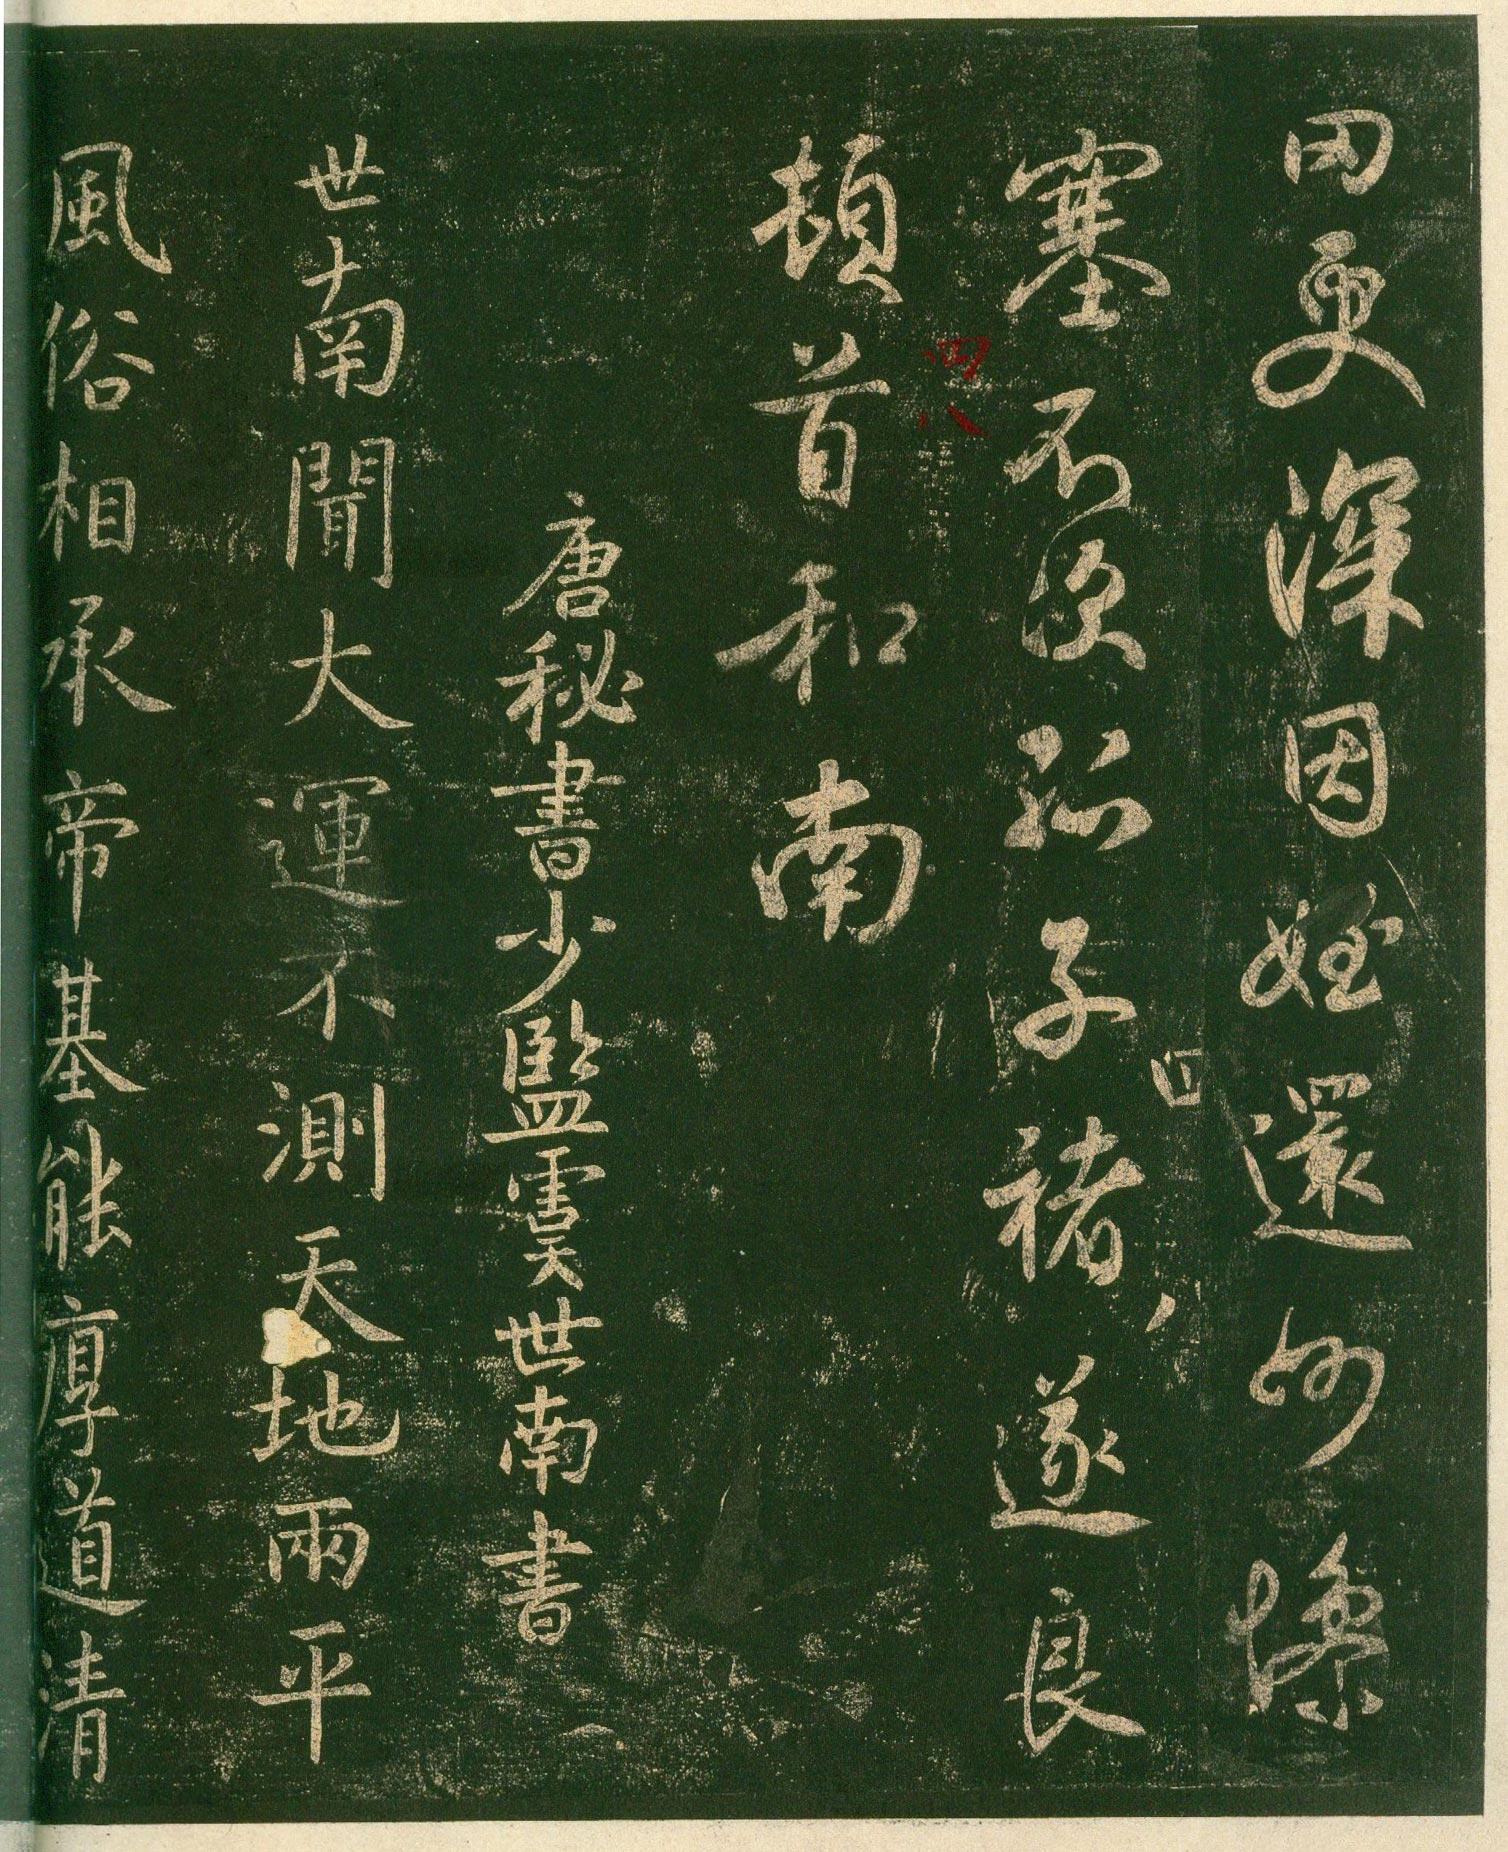 罔更深因姪還州慘
塞不次孤子褚遂良
頓首和南
四八
唐秘書少監虞世南書
世南聞大運不測天地兩平
風俗相承帝基能厚道清